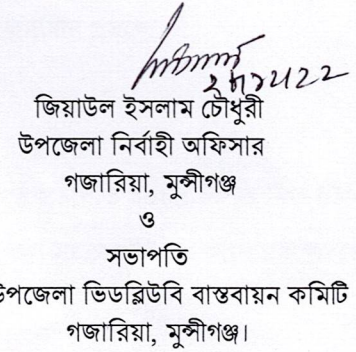 জিয়াউল ইসলাম চৌধুরী
উপজেলা নির্বাহী অফিসার
গজারিয়া, মুন্সীগঞ্জ
ও
সভাপতি
উপজেলা ভিডব্লিউবি বাস্তবায়ন কমিটি
গজারিয়া, মুন্সীগঞ্জ।